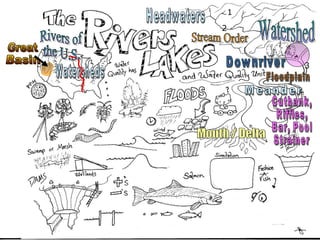 The
Rivers
Lakes
and Water Quality Unit
Headwaters
1
2
Stream Order
Watershed
Rivers of
the U.S.
Great
Basin
Watersheds
Water
Quality has
Downriver
Floodplain
Meander
FLOODS
Cutbank,
Riffles,
Bar, Pool
Strainer
Mouth / Delta
Swamp or Marsh
Wetlands
DAMS
+'s
-'s
Salmon
Simulation
Fish